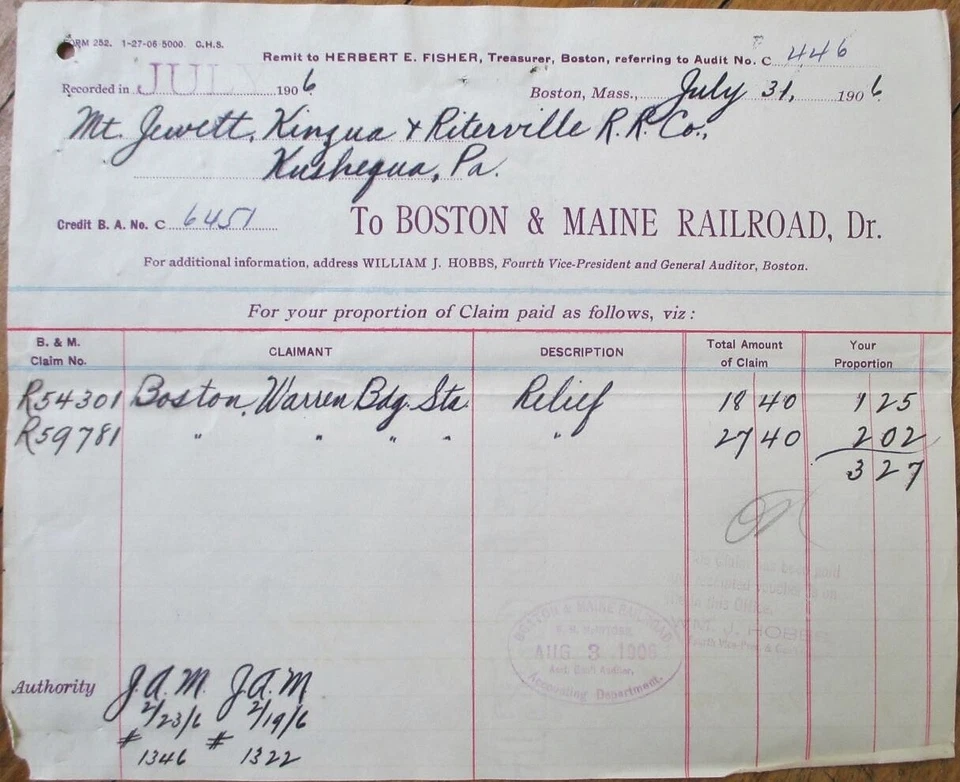 FORM 252. 1-27-06 5000. C.H.S.
Remit to HERBERT E. FISHER, Treasurer, Boston, referring to Audit No. C 446
Recorded in JULY 1906 Boston, Mass., July 31, 1906
Mt. Jewett, Kinzua & Riterville R.R. Co.,
Kushequa, Pa.
Credit B. A. No. C 6451 To BOSTON & MAINE RAILROAD, Dr.
For additional information, address WILLIAM J. HOBBS, Fourth Vice-President and General Auditor, Boston.
For your proportion of Claim paid as follows, viz:
B. & M. Claim No. CLAIMANT DESCRIPTION Total Amount of Claim Your Proportion
R54301 Boston, Warren Bdg. Sta. Relief 18 40 1 25
R59781 " " " " " 27 40 2 02
3 27
claim has been paid
voucher is on
in this Office.
WM. J. HOBBS
Fourth Vice-Pres. & Gen'l
BOSTON & MAINE RAILROAD
AUG 3 1906
Auditor,
Accounting Department.
Authority J.A.M. J.A.M
2/23/6 2/19/6
# 1346 # 1322